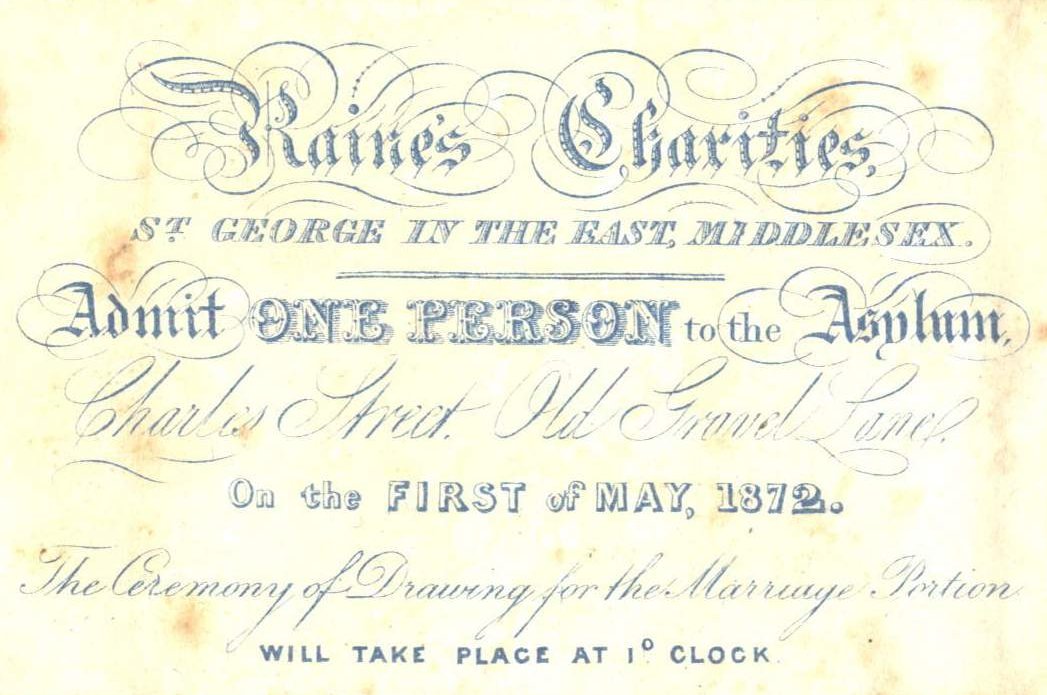 Raine's Charities,
ST. GEORGE IN THE EAST, MIDDLESEX.
Admit ONE PERSON to the Asylum,
Charles Street. Old Gravel Lane.
On the FIRST of MAY, 1872.
The Ceremony of Drawing for the Marriage Portion
WILL TAKE PLACE AT 1º CLOCK.